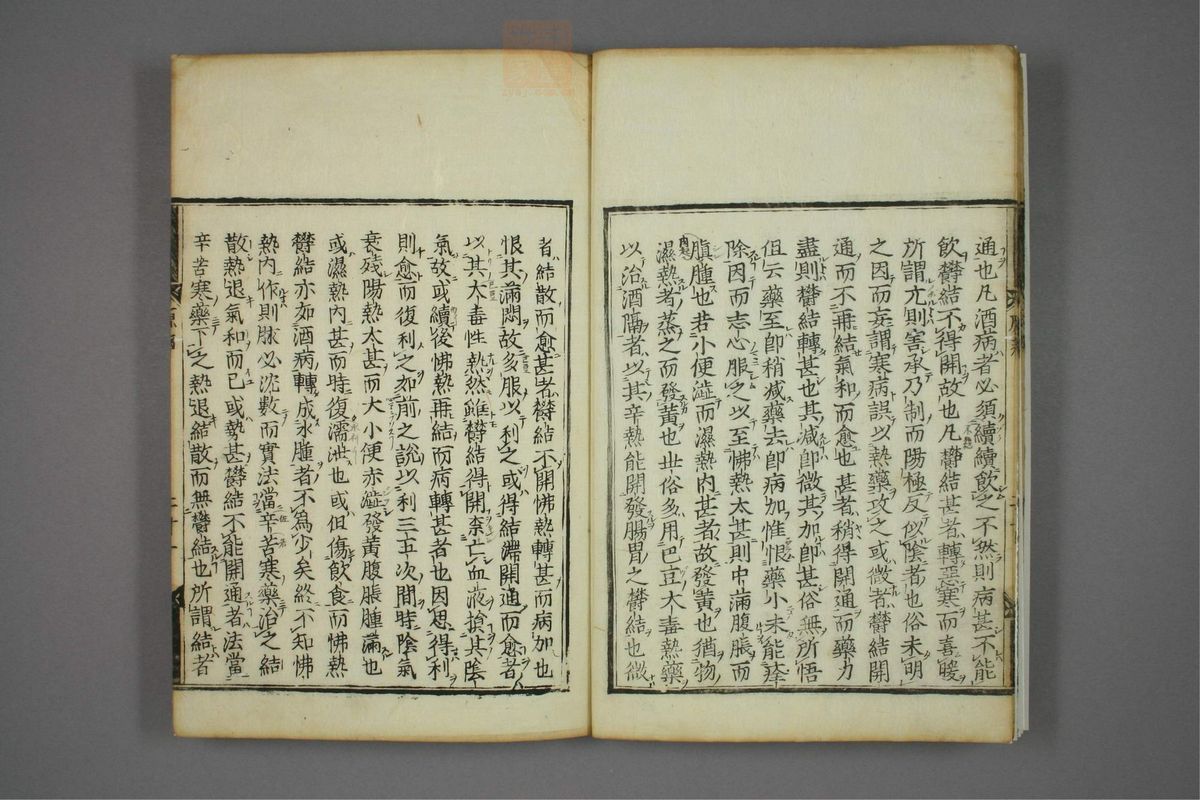 通也凡酒病者必須續續飲之不然則病甚不能
飲欝結不得開故也凡欝結甚者轉惡寒而喜暖
所謂亢則害承乃制而陽極反似陰者也俗未明
之因而妄謂寒病誤以熱藥攻之或微者欝結開
通而不再結氣和而愈也甚者稍得開通而藥力
盡則欝結轉甚也其减卽微其加卽甚俗無所悟
但云藥至卽稍减藥去卽病加惟恨藥小未能痊
除因而志心服之以至怫熱太甚則中滿腹脹而
腫也若小便澁而濕熱內甚者故發黃也猶物
濕熱者蒸之而發黃也世俗多用巴豆大毒熱藥
以治酒隔者以其辛熱能開發腸胃之欝結也微
者結散而愈甚者欝結不開怫熱轉甚而病加也
恨其滿悶故多服以利之或得結滯開通而愈者
以其大毒性熱然雖欝結得開柰亡血液損其陰
氣故或續後怫熱再結而病轉甚者也因思得利
則愈而復利之如前之說以利三五次間時陰氣
衰殘陽熱太甚而大小便赤澁發黃腹脹腫滿也
或濕熱內甚而時復濡泄也或但傷飲食而怫熱
欝結亦如酒病轉成水腫者不為少矣終不知怫
熱內作則脉必沈數而實法當辛苦寒藥治之結
散熱退氣和而已或熱甚欝結不能開通者法當
辛苦寒藥下之熱退結散而無欝結也所謂結者